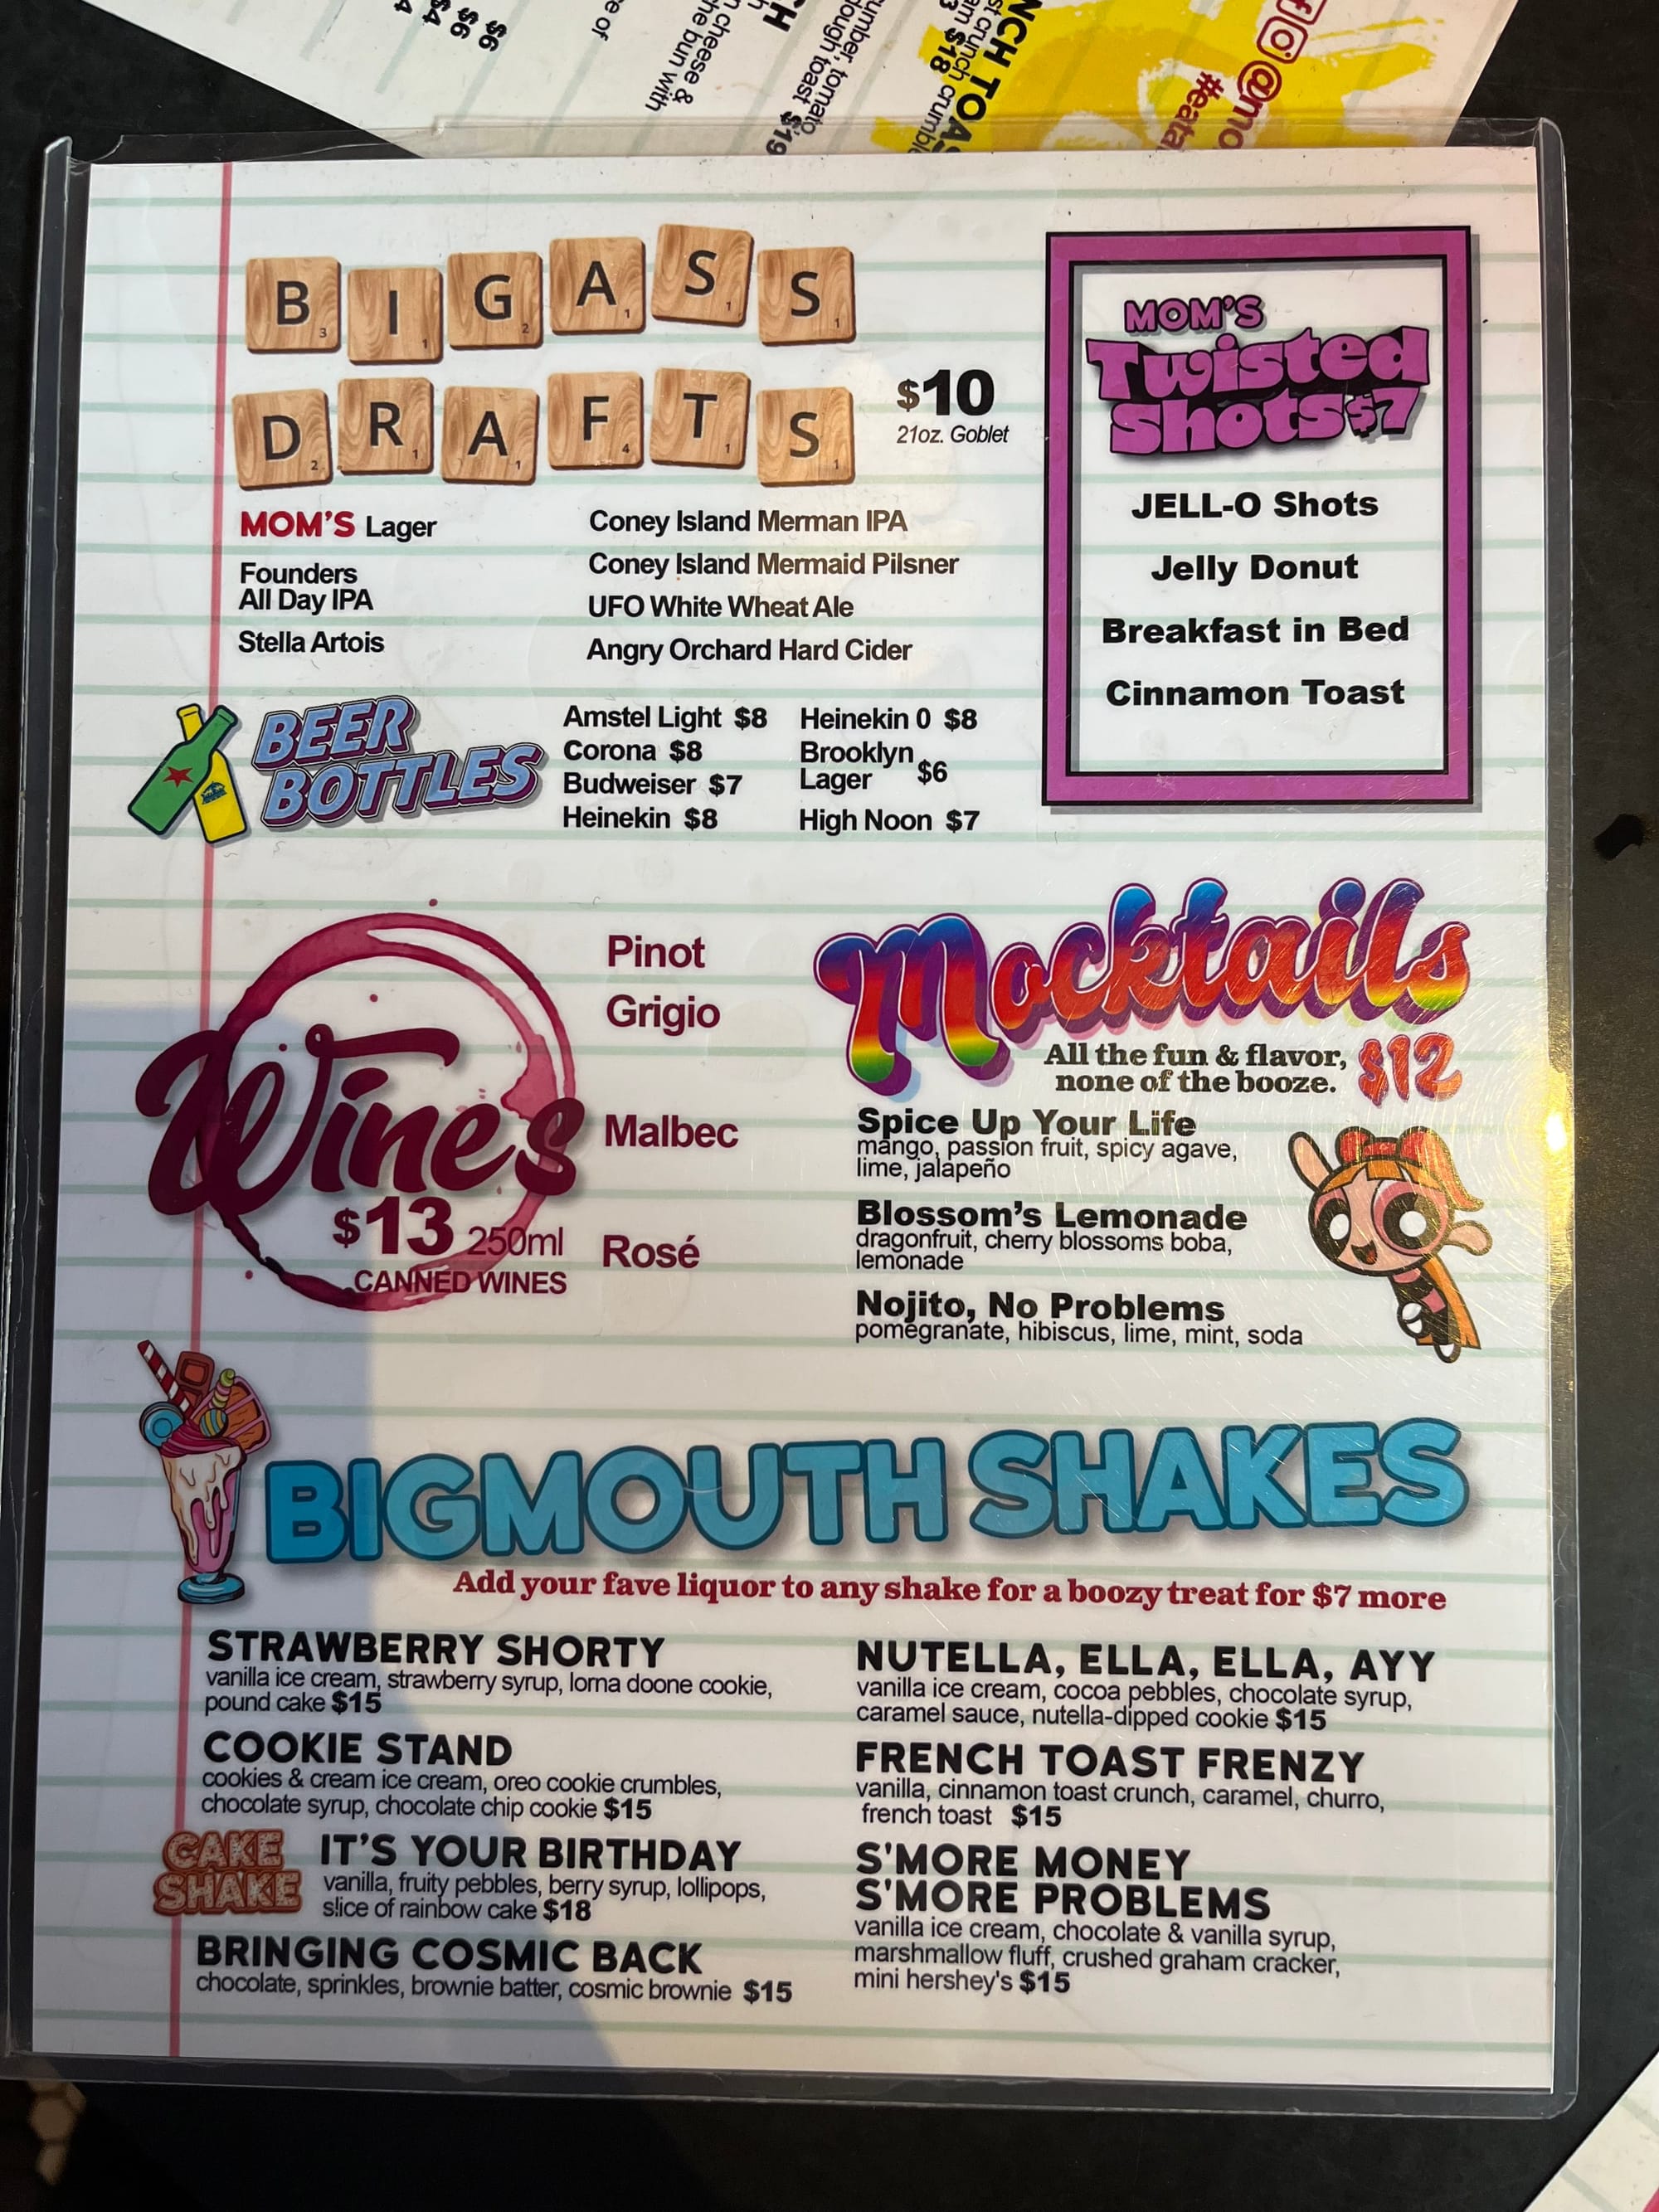 $6
$6
$4
e of
n cheese &
he bun with
CH
umber, tomato,
dough toast $19
NCH TOAS
st crunch crumble
$18
@mo
#eata
BIGASS
DRAFTS
$10
21oz. Goblet
MOM'S Lager
Founders
All Day IPA
Stella Artois
Coney Island Merman IPA
Coney Island Mermaid Pilsner
UFO White Wheat Ale
Angry Orchard Hard Cider
MOM'S
Twisted
Shots $7
JELL-O Shots
Jelly Donut
Breakfast in Bed
Cinnamon Toast
BEER
BOTTLES
Amstel Light $8
Corona $8
Budweiser $7
Heinekin $8
Heinekin 0 $8
Brooklyn
Lager $6
High Noon $7
Wines
$13 250ml
CANNED WINES
Pinot
Grigio
Malbec
Rosé
Mocktails
All the fun & flavor,
none of the booze.
$12
Spice Up Your Life
mango, passion fruit, spicy agave,
lime, jalapeño
Blossom's Lemonade
dragonfruit, cherry blossoms boba,
lemonade
Nojito, No Problems
pomegranate, hibiscus, lime, mint, soda
BIGMOUTH SHAKES
Add your fave liquor to any shake for a boozy treat for $7 more
STRAWBERRY SHORTY
vanilla ice cream, strawberry syrup, lorna doone cookie,
pound cake $15
COOKIE STAND
cookies & cream ice cream, oreo cookie crumbles,
chocolate syrup, chocolate chip cookie $15
CAKE
SHAKE
IT'S YOUR BIRTHDAY
vanilla, fruity pebbles, berry syrup, lollipops,
slice of rainbow cake $18
BRINGING COSMIC BACK
chocolate, sprinkles, brownie batter, cosmic brownie $15
NUTELLA, ELLA, ELLA, AYY
vanilla ice cream, cocoa pebbles, chocolate syrup,
caramel sauce, nutella-dipped cookie $15
FRENCH TOAST FRENZY
vanilla, cinnamon toast crunch, caramel, churro,
french toast $15
S'MORE MONEY
S'MORE PROBLEMS
vanilla ice cream, chocolate & vanilla syrup,
marshmallow fluff, crushed graham cracker,
mini hershey's $15